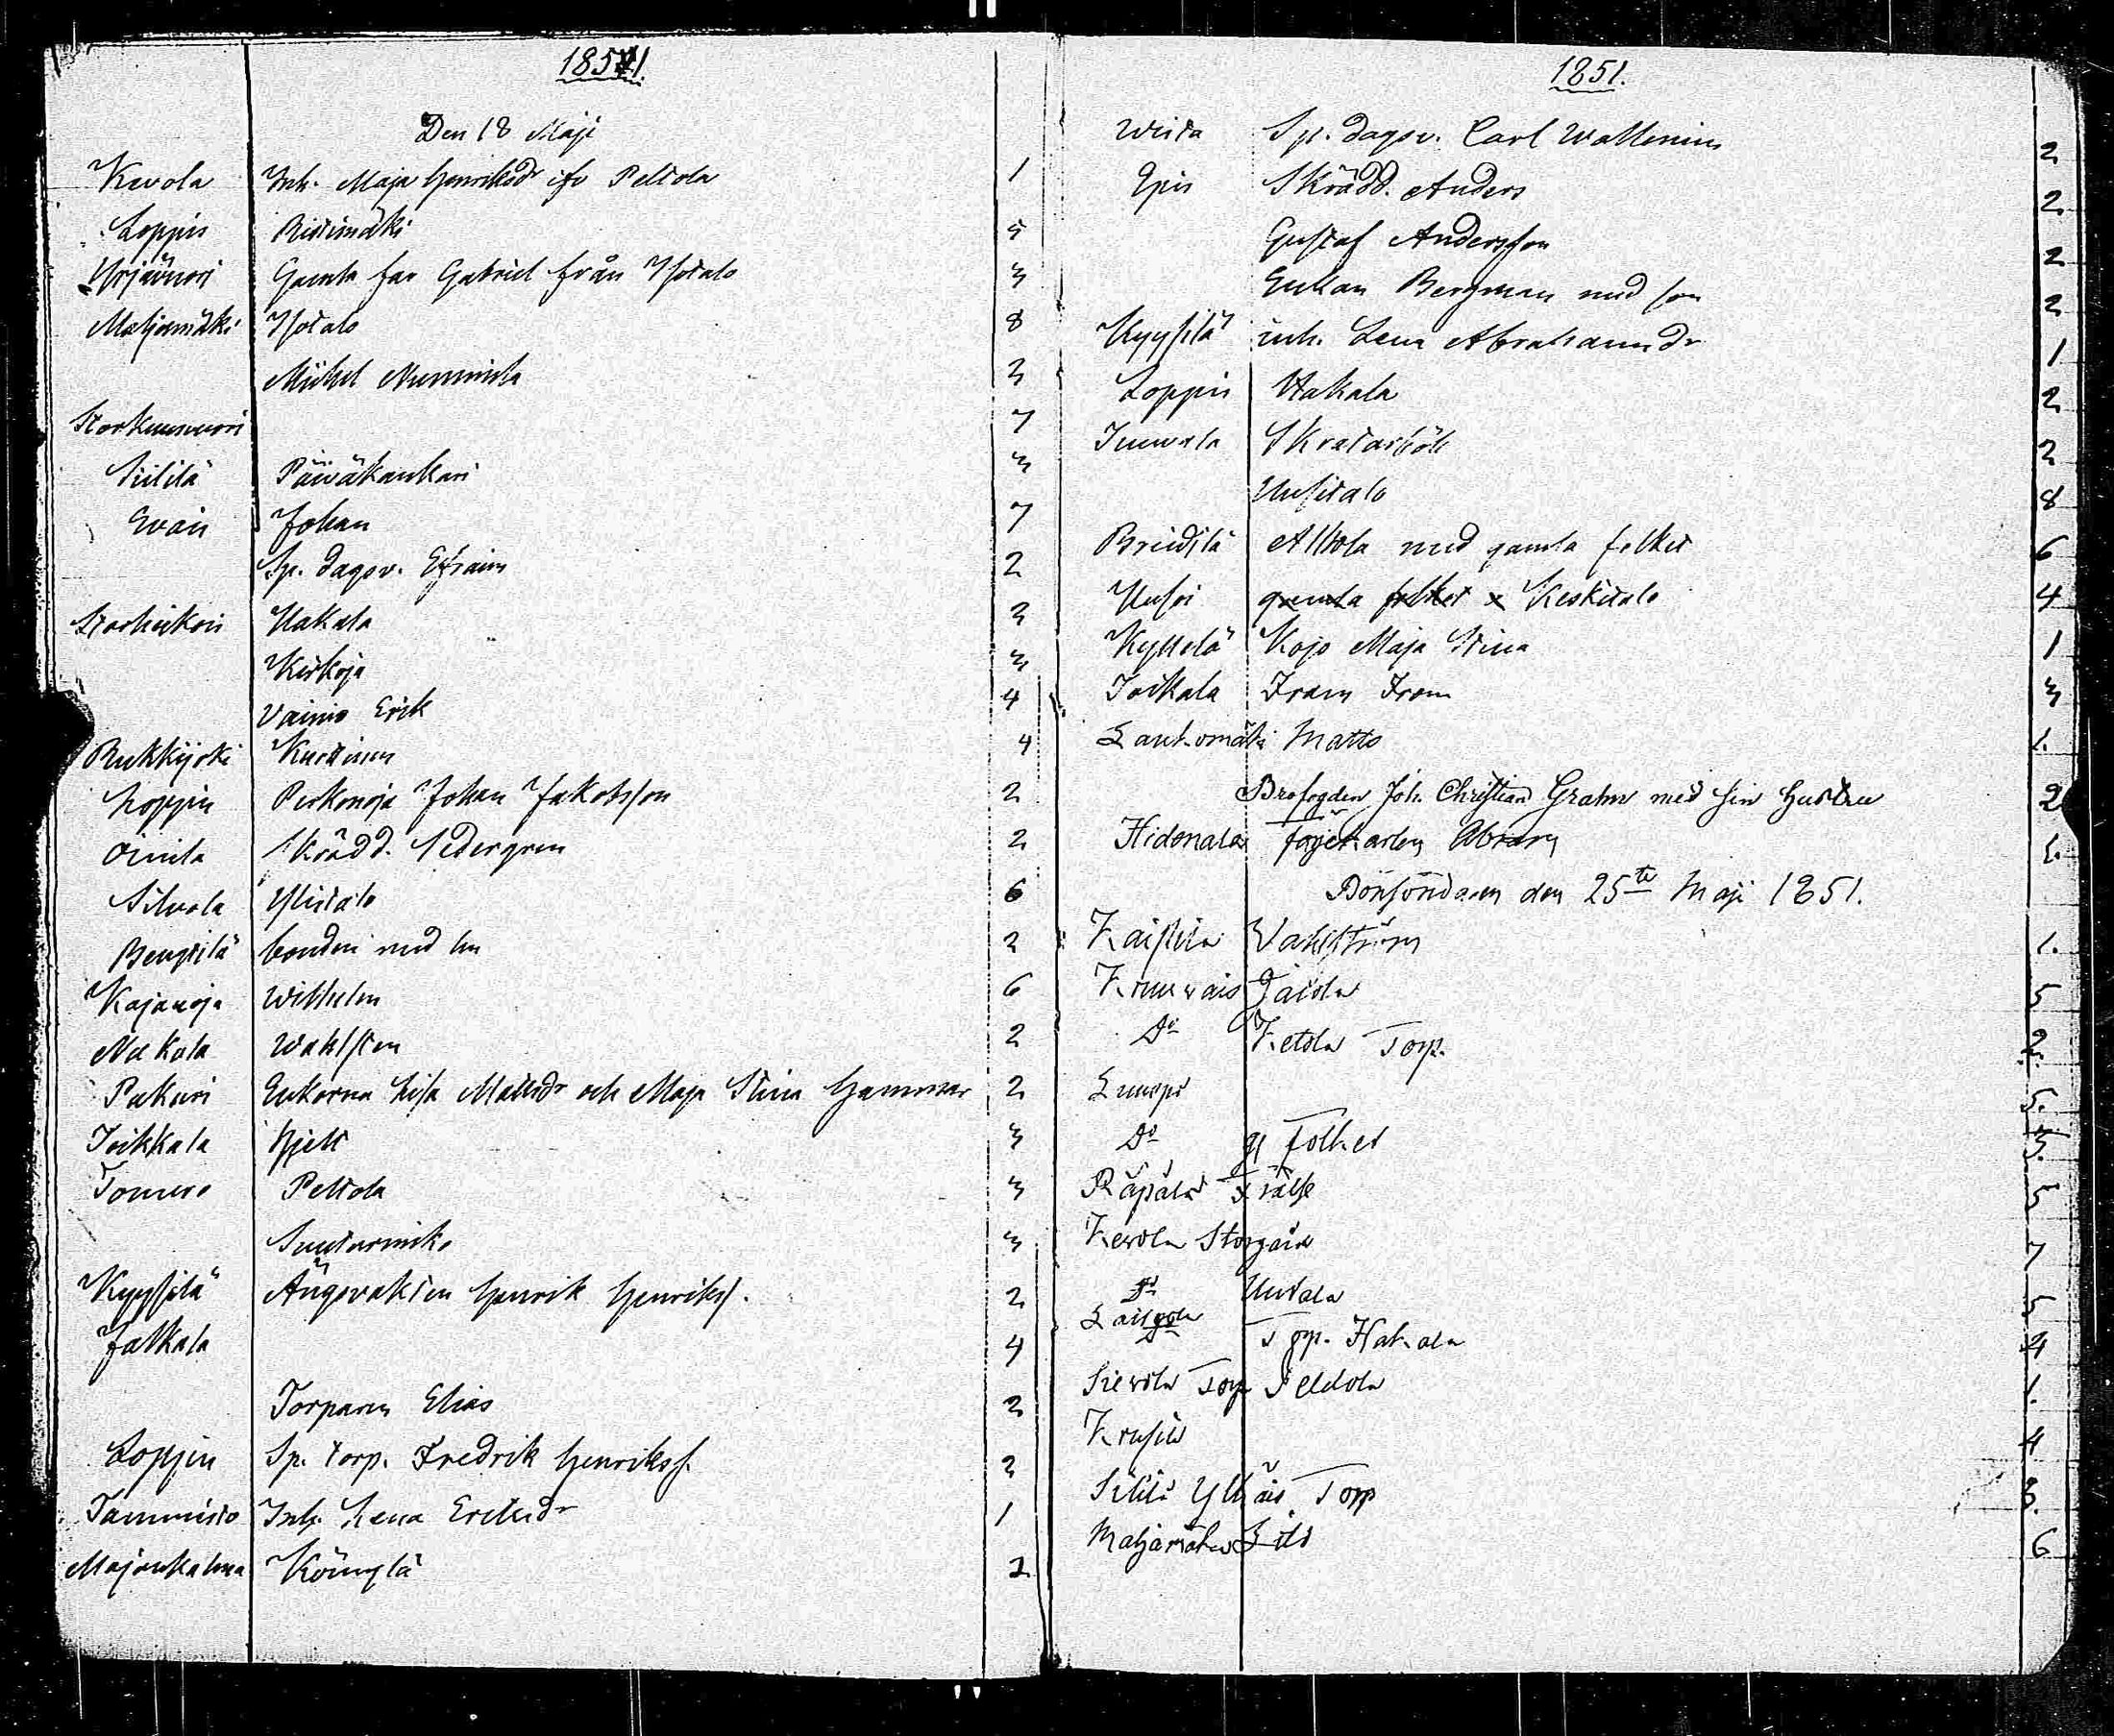 1851.
Den 18 Maji
Kevola Inh. Maja Henriksdr ifr Peltola 1
Loppis Ristimäki 5
Yrjänuori Gamla far Gabriel från Isotalo 3
Maljamäki Isotalo 8
Michel Numminita 2
Storkuusvuori 7
Siililä Päiväkankari 3
Eväis Johan 7
Sp. dagsv. Efraim 2
Storheikois Hakala 2
Kirkoja 3
Vainio Erik 4
Rukkijoki Kurkinen 4
Loppis Perkonoja Johan Jakobsson 2
Oinila Skrädd. Sedergren 2
Silvola Ylistalo 6
Bengtilä bonden med hu 2
Kajanoja Wilhelm 6
Nokola Wahlsten 2
Pakuri Enkorna Lisa Mattsdr och Maja Stina Hammar 2
Joikkala Hjelt 3
Tomero Peltola 3
Suutarmiko 3
Kyysilä Ängsvakten Henrik Henrikss. 2
Jalkala 4
Torparen Elias 2
Loppis Sp. torp. Fredrik Henrikss. 2
Tammisto Inh. Lena Ericksdr 1
Majankalma Köingilä 2
1851.
Wista Sp. dagsv. Carl Wallenius 2
Epis Skrädd. Anders 2
Gustaf Andersson 2
Enkan Bergman med son 2
Kyysilä inh. Lena Abrahamsdr 1
Loppis Hakala 2
Junnala Skratarböle 2
Uusitalo 8
Brindilä Alhola med gamla folket 6
Uusoi gamla folket x Keskitalo 4
Kyttelä Kojo Maja Stina 1
Joikala Fram From 3
Lauhomäki Matts 1.
Brofogden Joh. Christian Grahn med sin hustru 2
Hidonala fogekarlen Abram 1.
Bönsöndagen den 25te Maji 1851.
Kaisila Wahlström 1.
Kruuvais Jaiola 5
Do Ketola Torp. 2.
Luuspi 5.
Do gl folket 3.
Räpälä Frälse 5
Kevola Storgård 7
Do Uutala 5
Laisola Torp. Hakala 4
Sievola Torp Peldola 1.
Krusila 4
Silili Yliäis Torp 3.
Maljamäki Lill 6